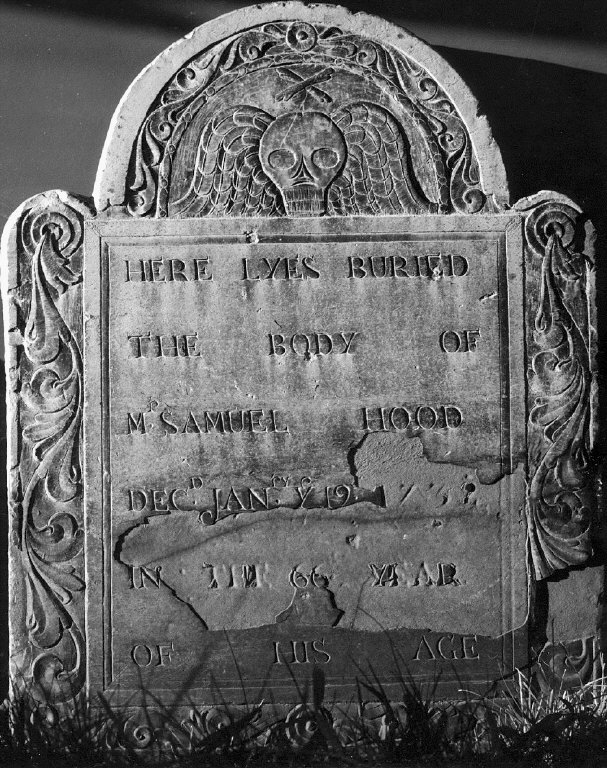 HERE LYES BURIED
THE BODY OF
Mᴿ SAMUEL HOOD
DECᴰ JANᴿʸ Yᵉ 19
IN THE 66 YEAR
OF HIS AGE